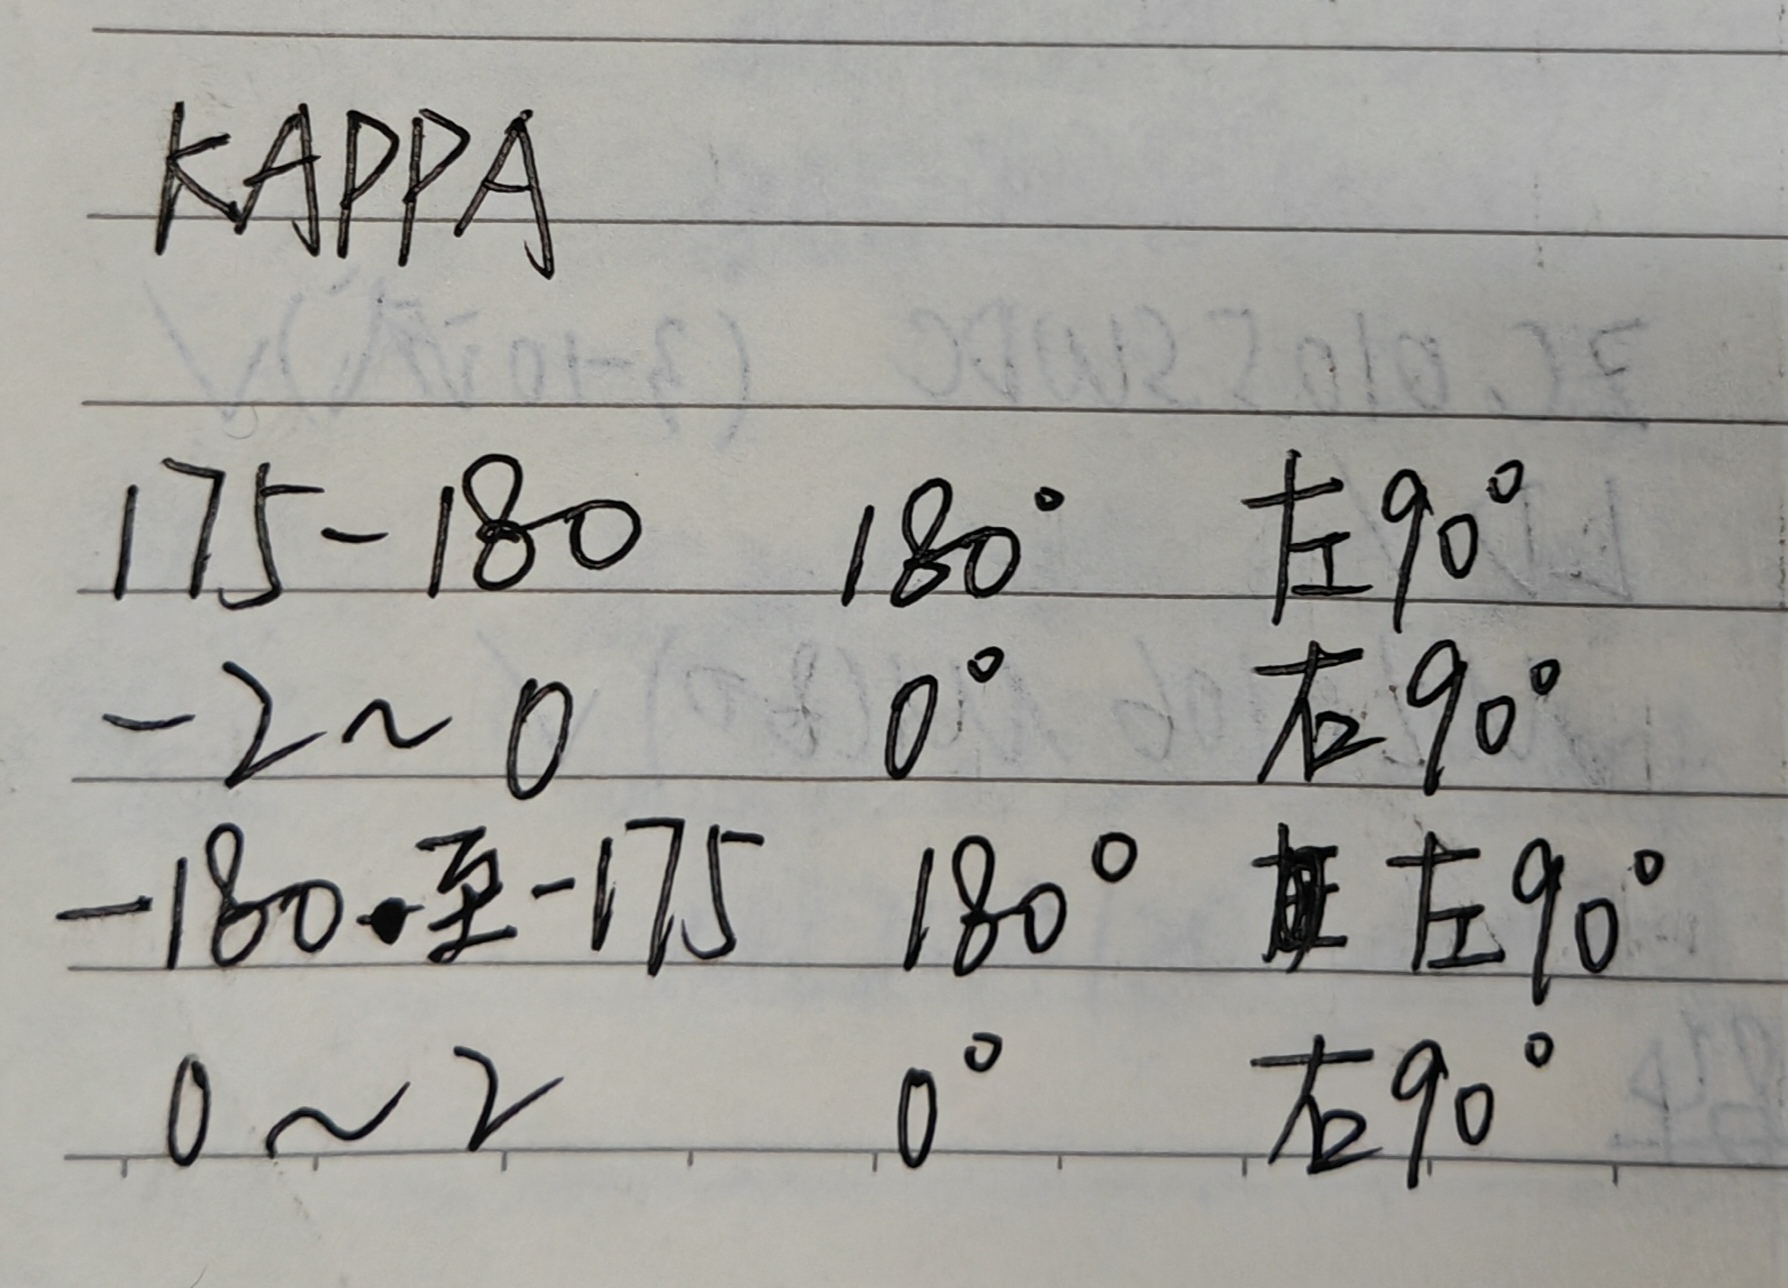 KAPPA
175-180 180° 左90°
-2~0 0° 右90°
-180至-175 180° 左90°
0~2 0° 右90°